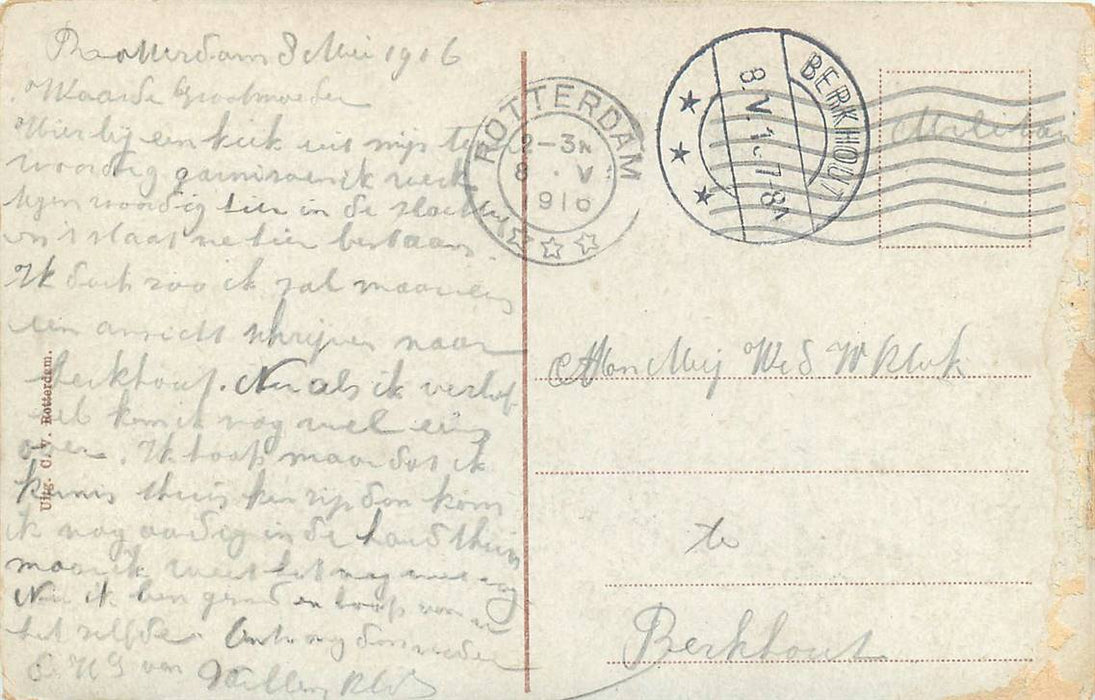 Rotterdam 8 Mei 1916
Waarde Grootmoeder
Hierbij een kiek uit mijn te
woordig garnizoen ik werk
tegenwoordig hier in de
Ik doch zoo ik zal maar eens
een ansicht schrijven naar
Berkhout. Nu als ik verlof
heb kom ik nog wel eens
over. Ik hoop maar dat ik
thuis ken zijn dan kom
ik nog aardig in de thuis
maar ik weet het nog niet
Nu ik ben gezond en hoop van u
het zelfde. Ontvang
van Willem Klok
Uitg. C. V. Rotterdam.
ROTTERDAM
2-3N
8 . V
916
BERKHOUT
8.V.1 .7-8N
Militair
Aan Mej Wed W Klok
te
Berkhout